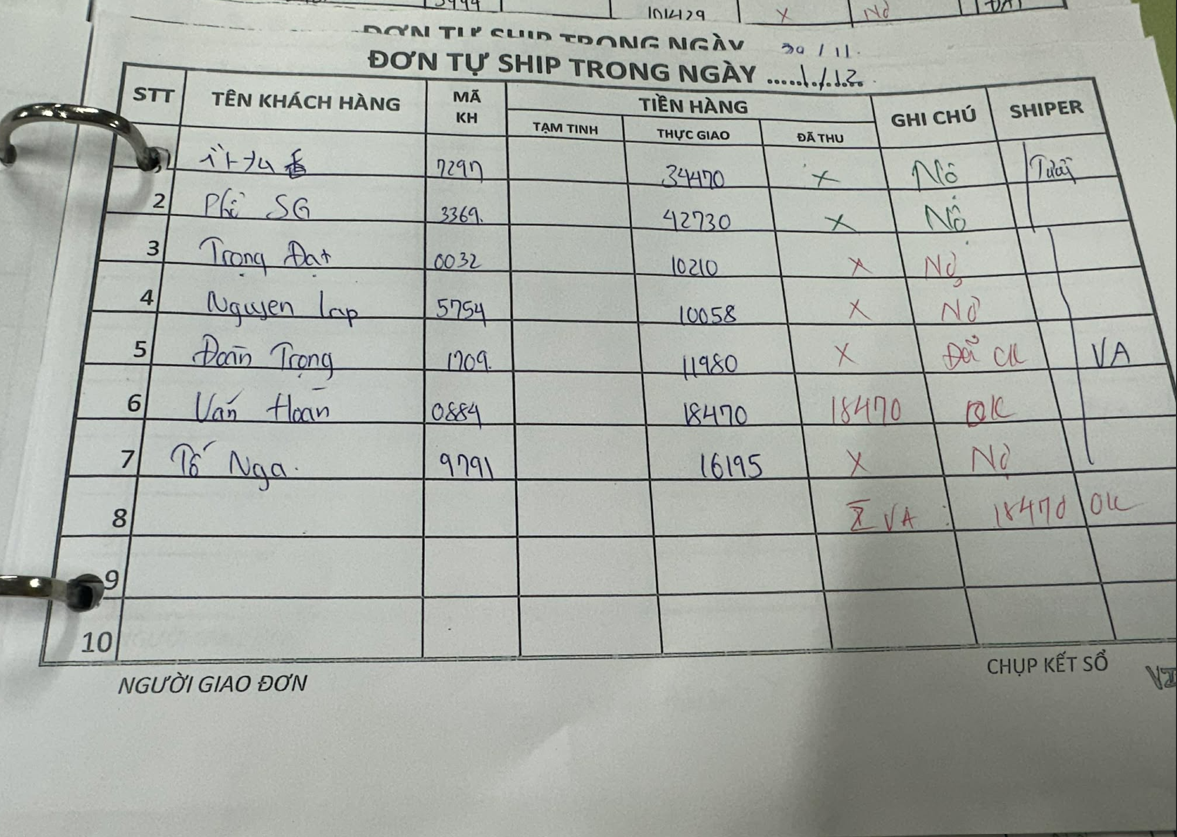 101429 X Nợ
ĐƠN TỰ SHIP TRONG NGÀY 30/11.
ĐƠN TỰ SHIP TRONG NGÀY ...1/12.
STT TÊN KHÁCH HÀNG MÃ KH TIỀN HÀNG GHI CHÚ SHIPER
TẠM TINH THỰC GIAO ĐÃ THU
7297 34470 X Nợ Tuấn
2 Phi SG 3369. 42730 X Nợ
3 Trọng Đạt 0032 10210 X Nợ
4 Nguyen Lap 5754 10058 X Nợ
5 Đoàn Trọng 1709. 11980 X Đợi CK VA
6 Văn Hoan 0884 18470 18470 OK
7 Tố Nga. 9791 16195 X Nợ
8 Σ VA : 18470 OK
9
10
NGƯỜI GIAO ĐƠN CHỤP KẾT SỔ